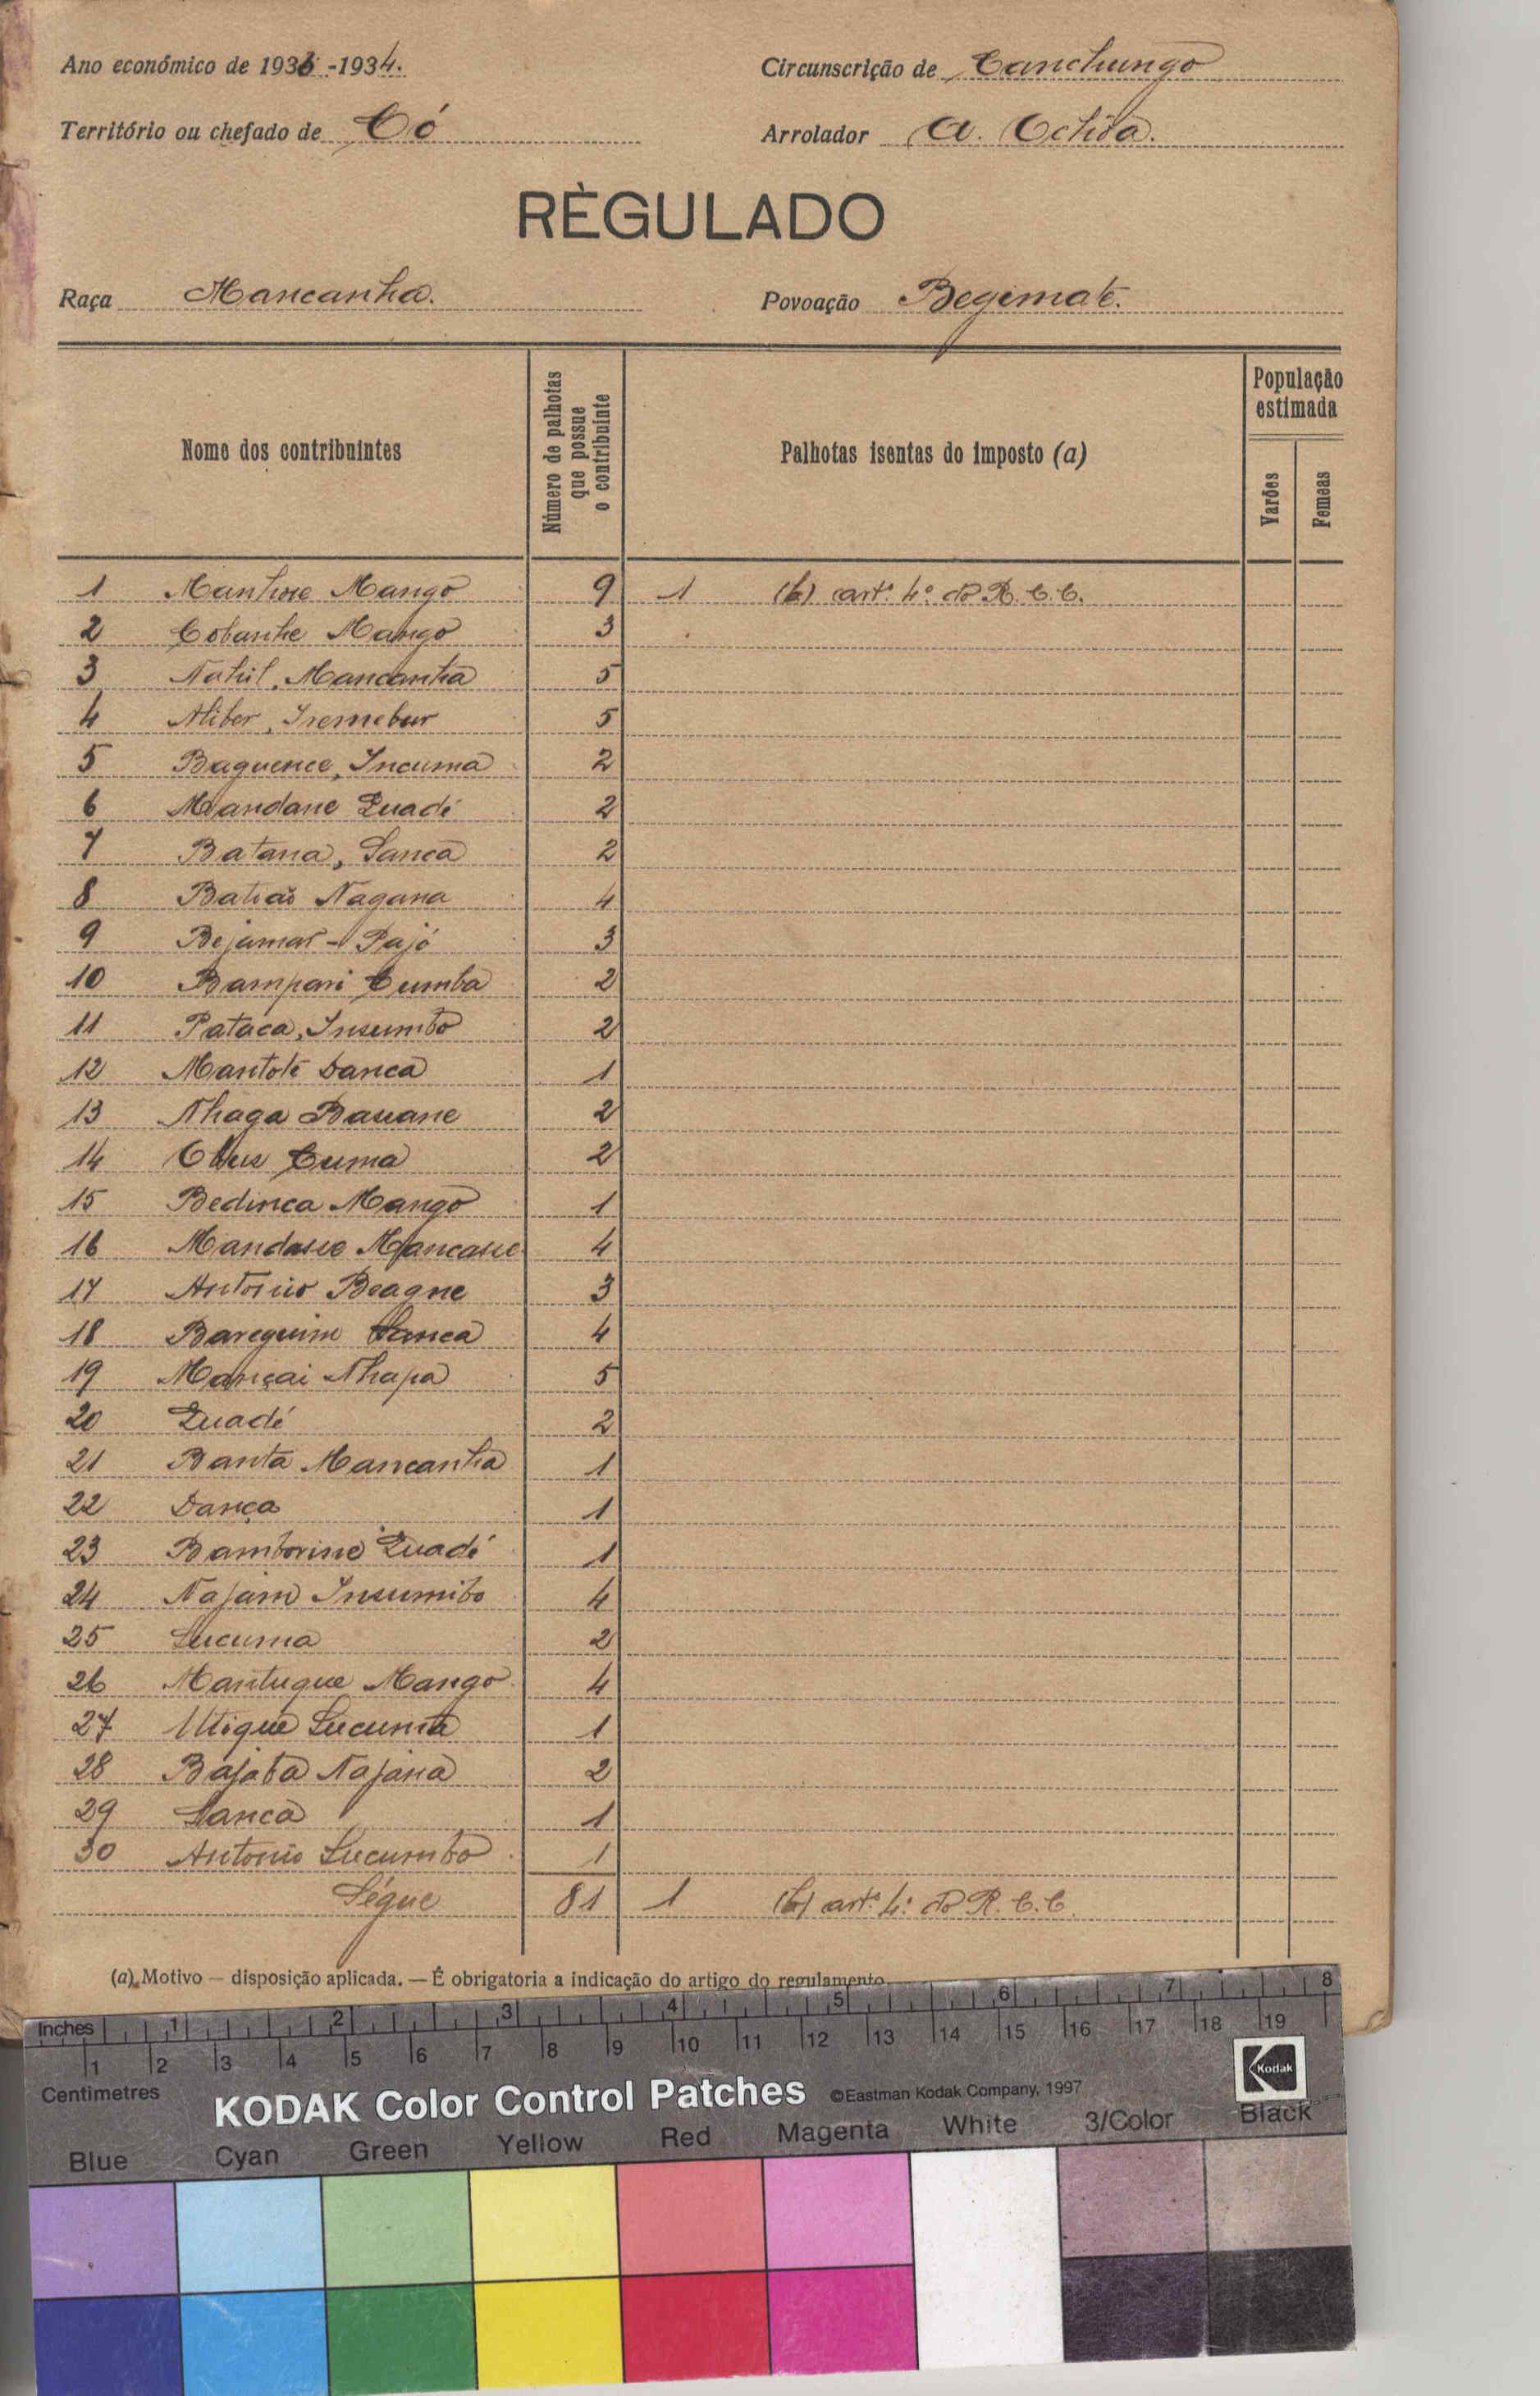 Ano económico de 1933-1934.
Circunscrição de Canchungo
Território ou chefado de Có
Arrolador A. Ochôa.
RÈGULADO
Raça Mancanha.
Povoação Begimate.
Nome dos contribuintes
Número de palhotas que possue o contribuinte
Palhotas isentas do imposto (a)
População estimada
Varões
Femeas
1 Manhoe Mango 9 1 (b) artº 4º do R.C.C.
2 Cobanhe Mango 3
3 Natul, Mancanha 5
4 5
5 Baguence, Incuma 2
6 Mandane Quadé 2
7 Batana, Sanca 2
8 Batiaõ Nagana 4
9 Bejamar - Pajó 3
10 Bampari Cumba 2
11 Pataca, Insumbo 2
12 Mantoté Danca 1
13 Nhaga Bauane 2
14 Cuma 2
15 Bedinca Mango 1
16 Mandasse Mancasse 4
17 Antonio Beagne 3
18 Barequim Sanca 4
19 Mançai Nhapa 5
20 Quadé 2
21 Banta Mancanha 1
22 Dança 1
23 Bamborine Quadé 1
24 Najam Insumbo 4
25 Lucuma 2
26 Mantuque Mango 4
27 Utique Lucuma 1
28 Bajaba Najana 2
29 Sanca 1
30 Antonio Lucumbo 1
Ségue 81 1 (b) artº 4º do R.C.C.
(a) Motivo — disposição aplicada. — É obrigatoria a indicação do artigo do regulamento
Inches 1 2 3 4 5 6 7 8
1 2 3 4 5 6 7 8 9 10 11 12 13 14 15 16 17 18 19
Centimetres
KODAK Color Control Patches ©Eastman Kodak Company, 1997 Kodak
Blue Cyan Green Yellow Red Magenta White 3/Color Black